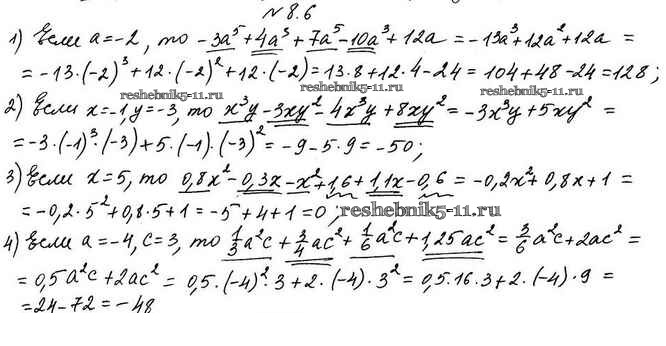 № 8.6
1) Если a=-2, то -3a⁵+4a³+7a⁵-10a³+12a = -13a³+12a²+12a =
= -13·(-2)³+12·(-2)²+12·(-2)=13·8+12·4-24=104+48-24=128;
reshebnik5-11.ru reshebnik5-11.ru
2) Если x=-1, y=-3, то x³y-3xy²-4x³y+8xy²=-3x³y+5xy² =
= -3·(-1)³·(-3)+5·(-1)·(-3)²=-9-5·9=-50;
3) Если x=5, то 0,8x²-0,3x-x²+1,6+1,1x-0,6 = -0,2x²+0,8x+1 =
= -0,2·5²+0,8·5+1=-5+4+1=0; reshebnik5-11.ru
4) Если a=-4, c=3, то 1/3a²c+3/4ac²+1/6a²c+1,25ac²=3/6a²c+2ac²=
= 0,5a²c+2ac² = 0,5·(-4)²·3+2·(-4)·3² = 0,5·16·3+2·(-4)·9 =
=24-72=-48